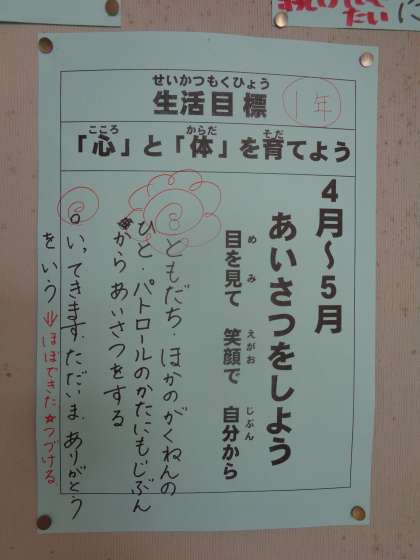 せいかつもくひょう
生活目標
1年
こころ からだ そだ
「心」と「体」を育てよう
4月～5月
あいさつをしよう
め み えがお じぶん
目を見て 笑顔で 自分から
ともだち・ほかのがくねんの
ひと・パトロールのかたにもじぶん
から あいさつをする
いってきます・ただいま・ありがとう
をいう ⇒ほぼできた☆つづける。
たい